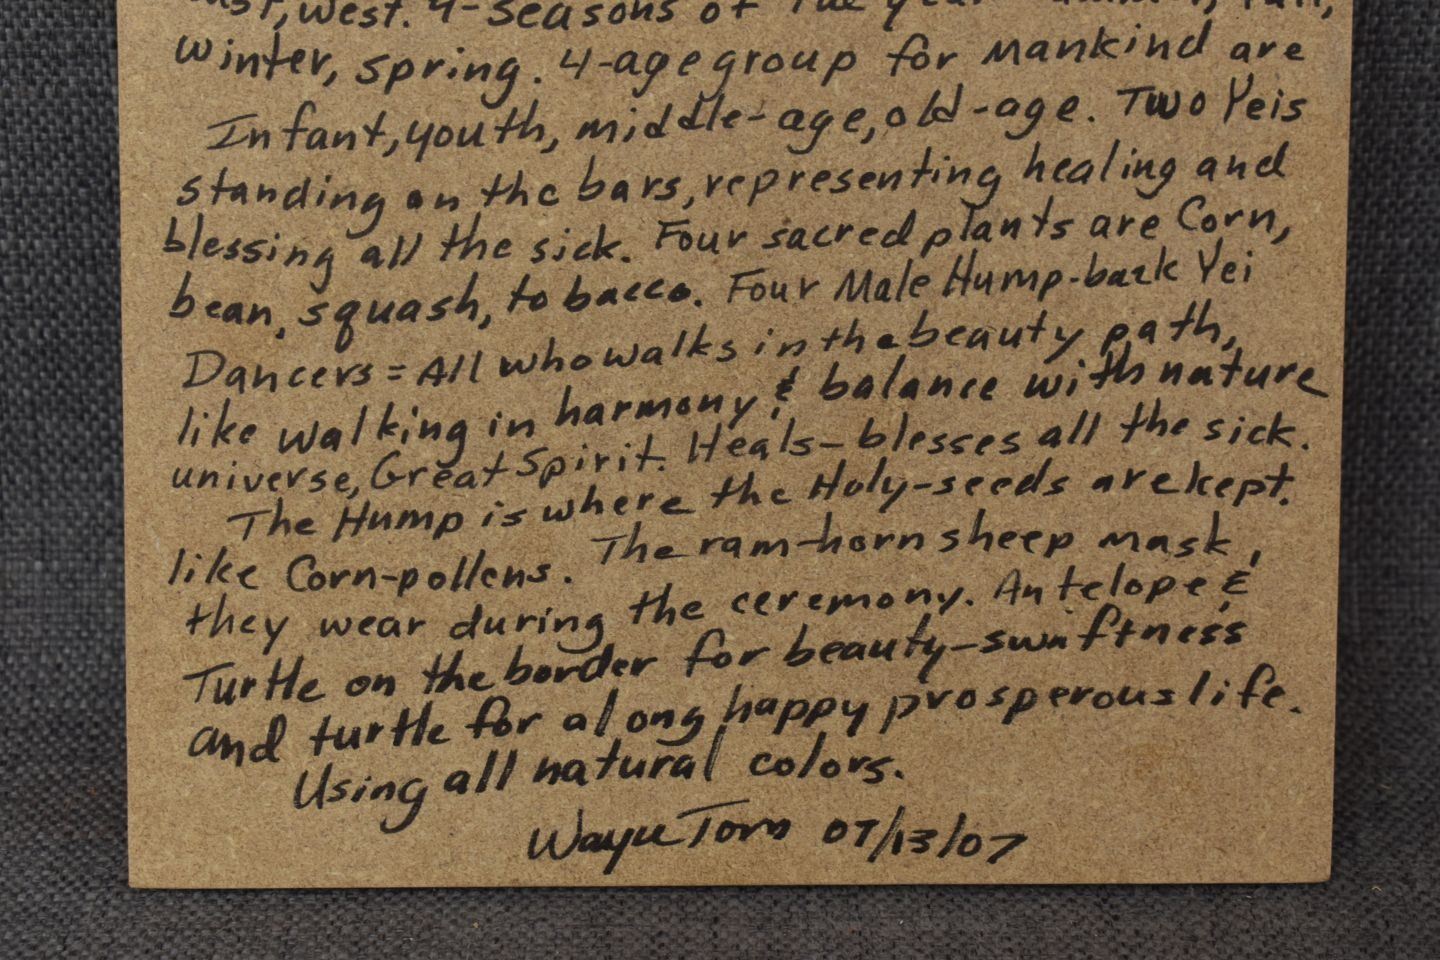 west. 4-seasons of the year
winter, spring. 4-age group for mankind are
Infant, youth, middle-age, old-age. Two Yeis
standing on the bars, representing healing and
blessing all the sick. Four sacred plants are Corn,
bean, squash, tobacco. Four Male Hump-back Yei
Dancers = All who walks in the beauty path,
like walking in harmony & balance with nature
universe, Great Spirit. Heals-blesses all the sick.
The Hump is where the Holy-seeds are kept.
like Corn-pollens. The ram-horn sheep mask,
they wear during the ceremony. Antelope &
Turtle on the border for beauty-swiftness
and turtle for a long happy prosperous life.
Using all natural colors.
07/13/07